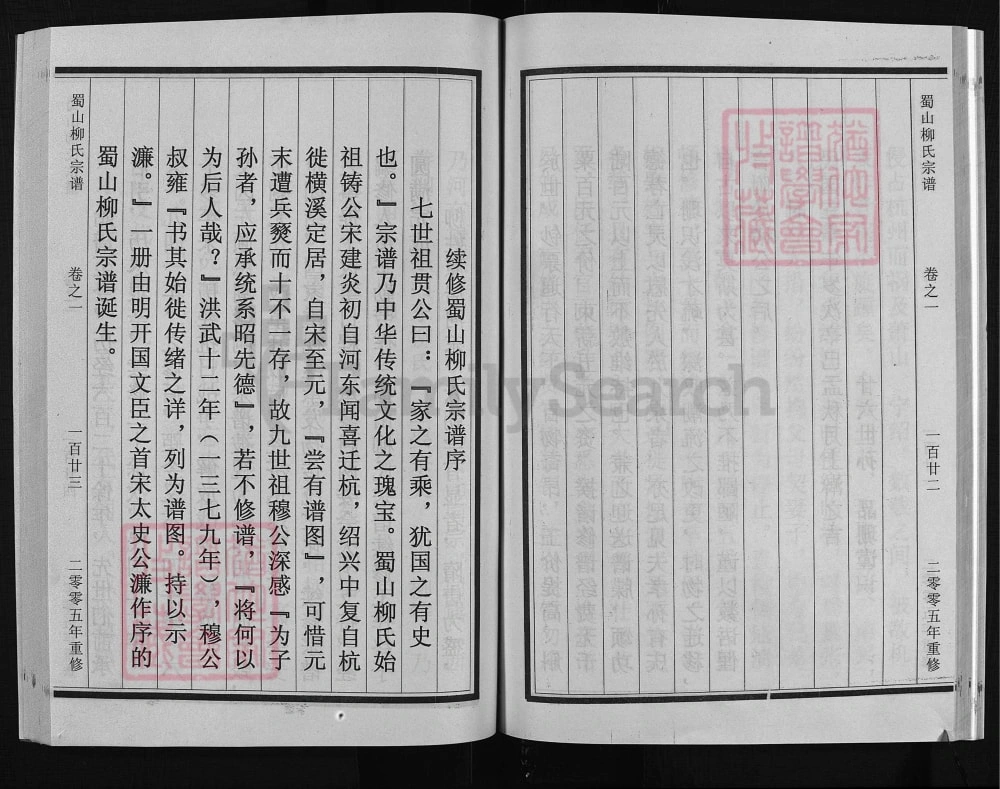 蜀山柳氏宗谱
卷之一
一百廿二
二零零五年重修
续修蜀山柳氏宗谱序
七世祖贯公曰：『家之有乘，犹国之有史
也。』宗谱乃中华传统文化之瑰宝。蜀山柳氏始
祖铸公宋建炎初自河东闻喜迁杭，绍兴中复自杭
徙横溪定居，自宋至元，『尝有谱图』，可惜元
末遭兵燹而十不一存，故九世祖穆公深感『为子
孙者，应承统系昭先德』，若不修谱，『将何以
为后人哉？』洪武十二年（一三七九年），穆公
叔雍『书其始徙传绪之详，列为谱图。持以示
濂。』一册由明开国文臣之首宋太史公濂作序的
蜀山柳氏宗谱诞生。
蜀山柳氏宗谱
卷之一
一百廿三
二零零五年重修
FamilySearch